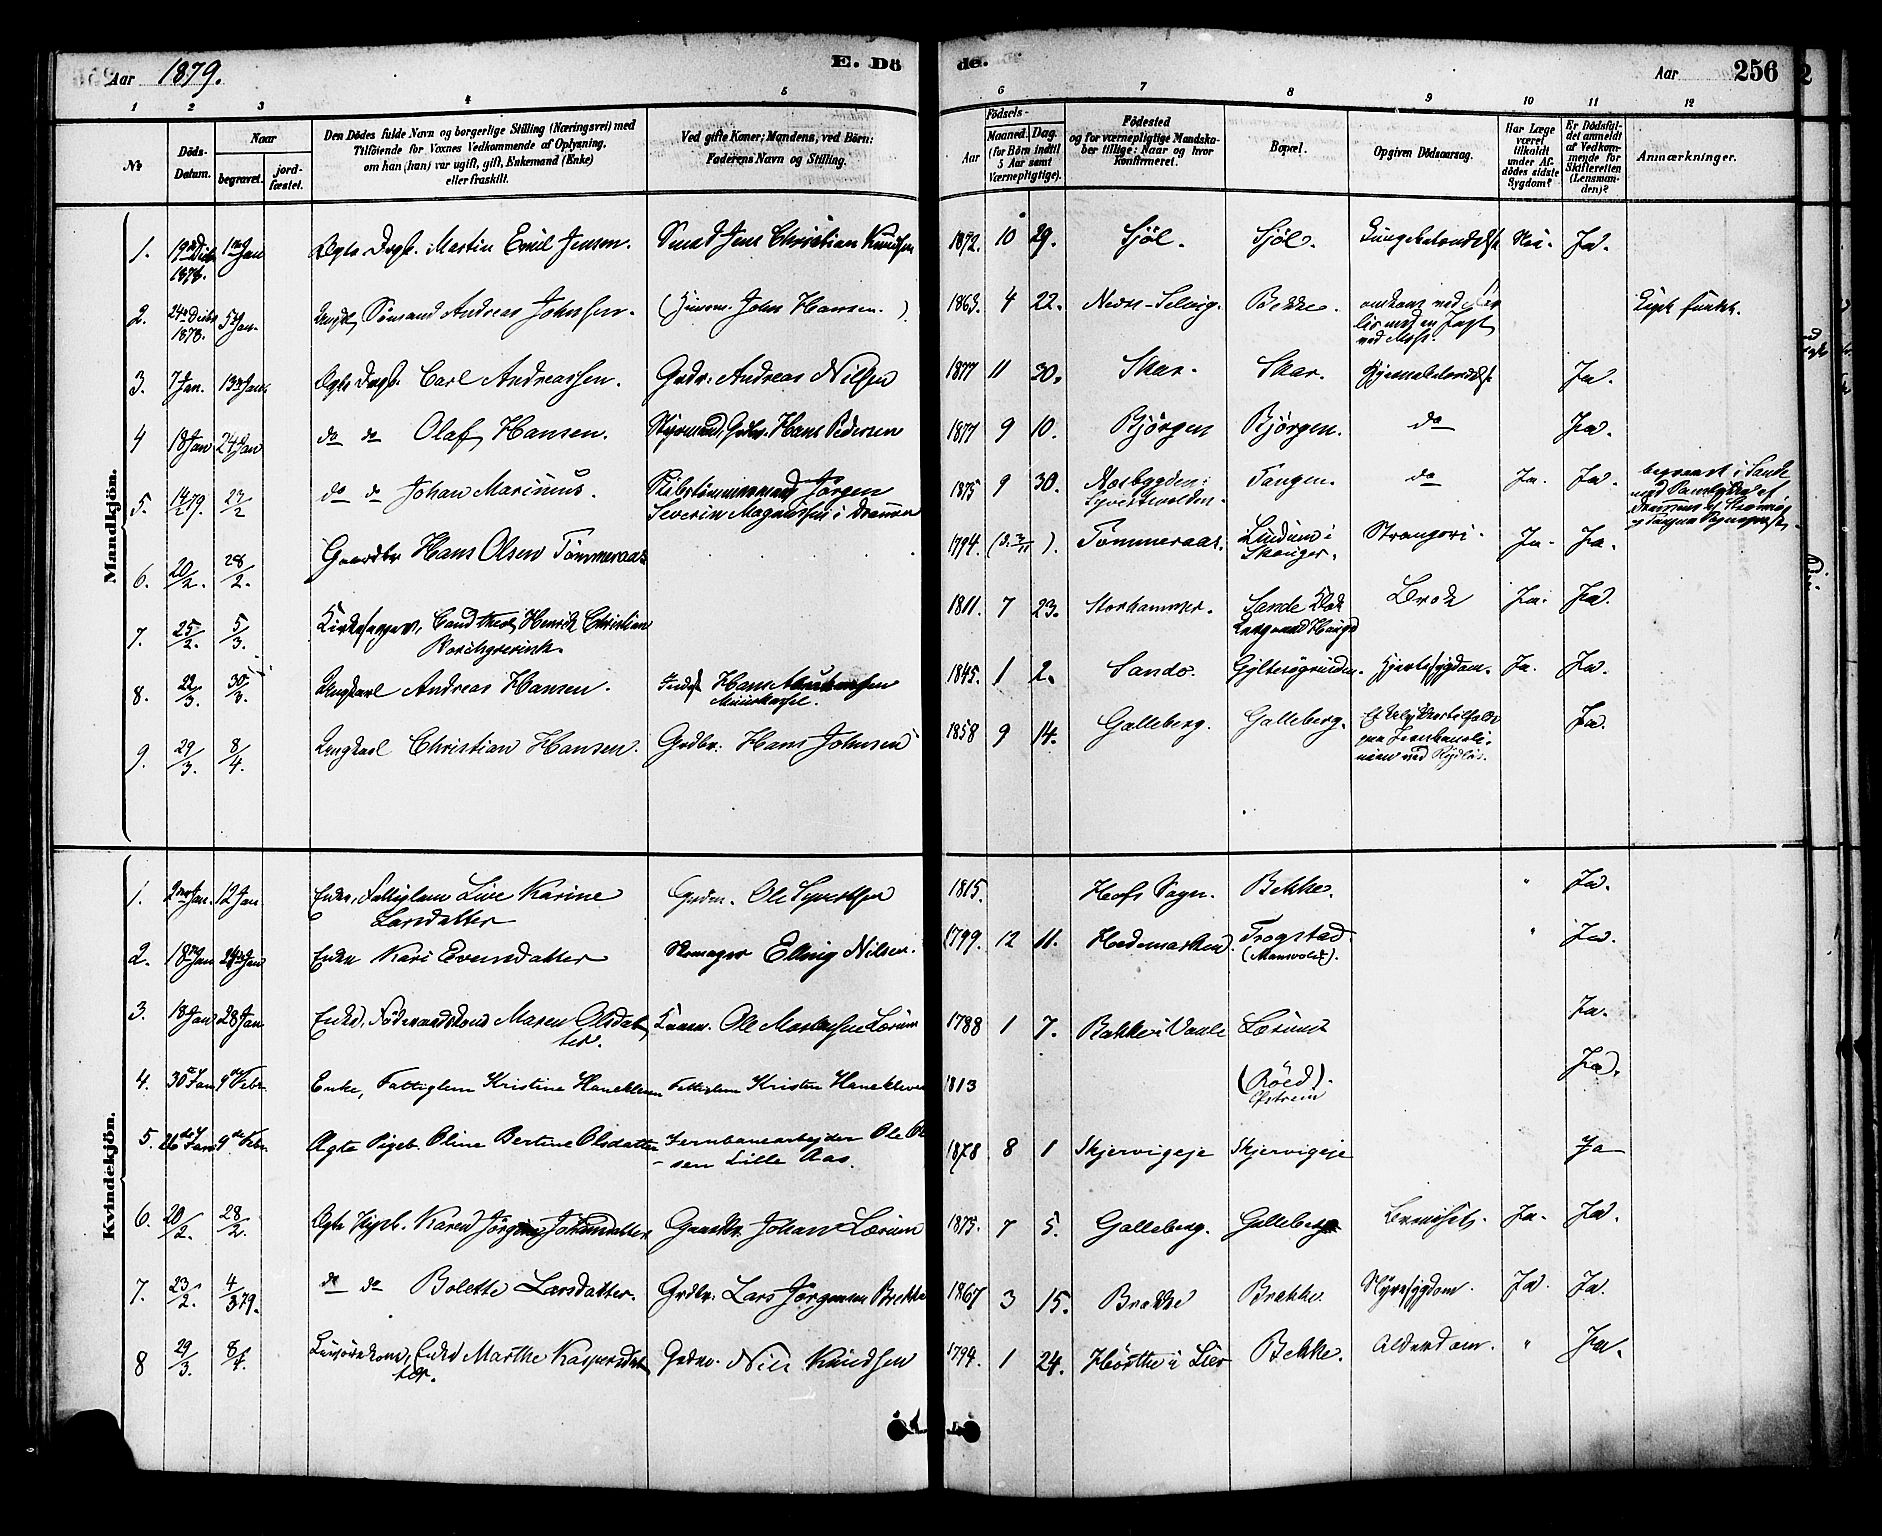 Aar 1879.
E. Dö
de.
Aar
256
1 2 3 4 5
6 7 8 9 10 11 12
No
Döds-Datum.
Naar
begravet.
jord-fæstet.
Den Dödes fulde Navn og borgerlige Stilling (Næringsvei) med
Tilföiende for Voxnes Vedkommende af Oplysning,
om han (hun) var ugift, gift, Enkemand (Enke)
eller fraskilt.
Ved gifte Koner; Mandens, ved Börn:
Faderens Navn og Stilling.
Födsels-
Aar
Maaned.
Dag.
(for Börn indtil
5 Aar samt
Værnepligtige).
Födested
og for værnepligtige Mandska-
ber tillige: Naar og hvor
konfirmeret.
Bopæl.
Opgiven Dödsaarsag.
Har Læge
været
tilkaldt
under Af-
dödes sidste
Sygdom?
Er Dödsfal-
det anmeldt
af Vedkom-
mende for
Skifteretten
(Lensman-
den)?
Anmærkninger.
Mandkjön.
1. 19de Decbr 1878. 1ste Jan Ægte Dreeb. Martin Emil Jensen. Smed Jens Christian Knudsen 1872. 10 29. Sjöl. Sjöl. Lungebetændelse Nei. Ja.
2. 24de Decbr 1878. 5te Jan. Sömand Andreas Johnsen. (Huusm. John Hansen.) 1863 4 22. Bekke. omkom ved
med en Jagt
ved Moss. Liget fundet.
3. 7 Jan. 13de Jan. Ægte Dreb. Carl Andreassen. Grdbr. Andreas Nilsen 1877 11 30. Skar. Skar. Hjernebetændelse Ja.
4 18 Jan 24 Jan do do Olaf Hansen. Styrmand, Grdbr. Hans Pedersen 1877 9 10. Björgen Björgen. do Ja.
5. 14/2 79. 22/2 do do Johan Marinus. Skibstömmermand Jörgen
Severin Magnussen i Drammen 1875 9 30. Tangen. do Ja. Ja. begravet i Sande
med Samtykke af
6. 20/2. 28/2. Gaardbr Hans Olsen Tömmeraas 1794. Tömmeraas. Lindum i
Skouger. Ja. Ja.
7. 25/2. 5/3. Kirkesanger, Cand theol, Henrik Christian 1811. 7 23. Storhammer. Sande
Haugs Brok Ja. Ja.
8. 22/3. 30/3. Ungkarl Andreas Hansen. Hans 1845. 1 2. Sande. Hjertesygdom. Ja. Ja.
9. 29/3. 8/4. Ungkarl Christian Hansen. Grdbr. Hans Johnsen 1858 9 14. Galleberg. Galleberg. Ja.
Kvindekjön.
1. 2den Jan. 12 Jan Enke, Fattiglem Live Karine
Larsdatter Grdm. Ole Syvertsen 1815. Hofs Sogn. Bekke. " Ja.
2. 18de Jan 24de Jan Enke Kari Evensdatter Skomager Elling Nilsen. 1799. 12 11. Hedemarken. Trogstad. " Ja.
3. 18 Jan 28 Jan Enke, Föderaadskone Maren Olsdat
ter. Ole Lærum 1788 1 7. Bakke i Vaale Lærum Ja.
4. 30te Jan 9de Febr Enke, Fattiglem Kristine Haneklven Fattiglem Kristen Haneklven 1813 (Röed).
Östrem Ja.
5. 26de Jan 9de Febr Ægte Pigeb. Oline Bertine Olsdatter Jernbanearbejder Ole Ol
sen Lille Aas. 1878 8 1 Skjervigeje Skjervigeje Ja
6. 20/2. 28/2. Ægte Pigeb. Karen Jörgine Johansdatter Gaardbr. Johan Lærum 1875. 7 5. Galleberg. Galleberg Ja. Ja.
7. 23/2. 4/3 79. do do Bolette Larsdatter. Grdbr. Lars Jörgensen Brekke 1867 3 15. Brække Brække. Nyresygdom. Ja. Ja.
8 29/3. 8/4. Enke Marthe Kaspersdat
ter. Grdbr. Nils Knudsen 1794. 1 24. Hörthe i Lier Bekke. Alderdom. " Ja.